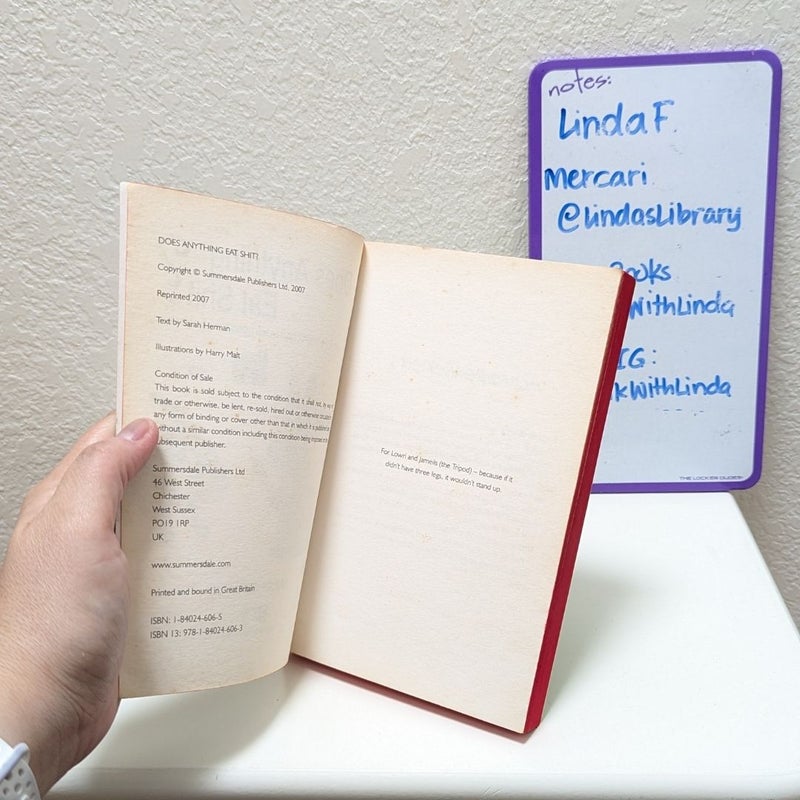 DOES ANYTHING EAT SHIT?
Copyright © Summersdale Publishers Ltd, 2007
Reprinted 2007
Text by Sarah Herman
Illustrations by Harry Malt
Condition of Sale
This book is sold subject to the condition that it shall not, by
trade or otherwise, be lent, re-sold, hired out or otherwise
any form of binding or cover other than that in which it is published
without a similar condition including this condition being imposed
subsequent publisher.
Summersdale Publishers Ltd
46 West Street
Chichester
West Sussex
PO19 1RP
UK
www.summersdale.com
Printed and bound in Great Britain
ISBN: 1-84024-606-5
ISBN 13: 978-1-84024-606-3
For Lown and (the Tripod) – because if it
didn't have three legs, it wouldn't stand up.
notes:
Linda F.
Mercari
@lindasLibrary
Books
WithLinda
IG:
kWithLinda
THE LOCKER DUDES